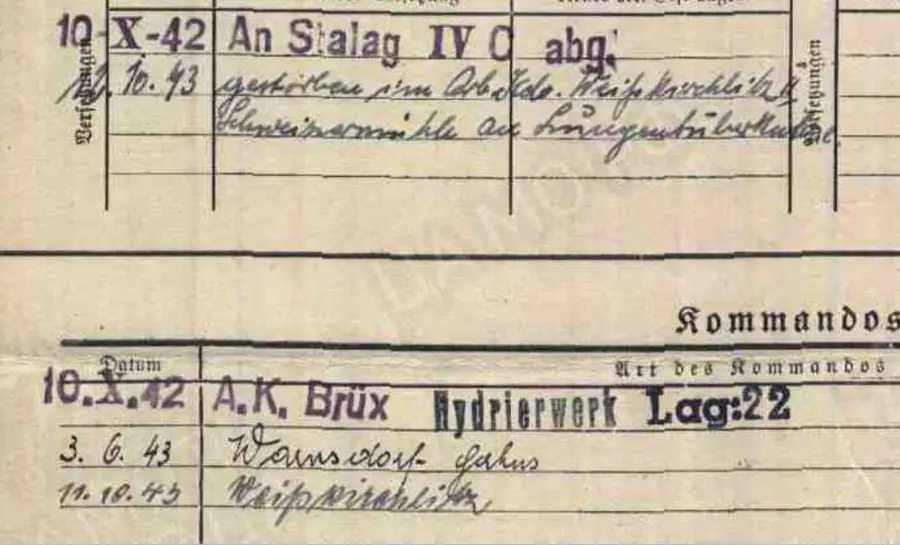 10-X-42 An Stalag IV C abg.
12.10.43 gestorben im Arb.Kdo. Weißkirchlitz
Schweizermühle an Lungentuberkulose.
Versetzungen
Kommandos
Datum
Art des Kommandos
10.X.42 A.K. Brüx Hydrierwerk Lag:22
3. 6. 43 Warnsdorf
11.10.43 Weißkirchlitz